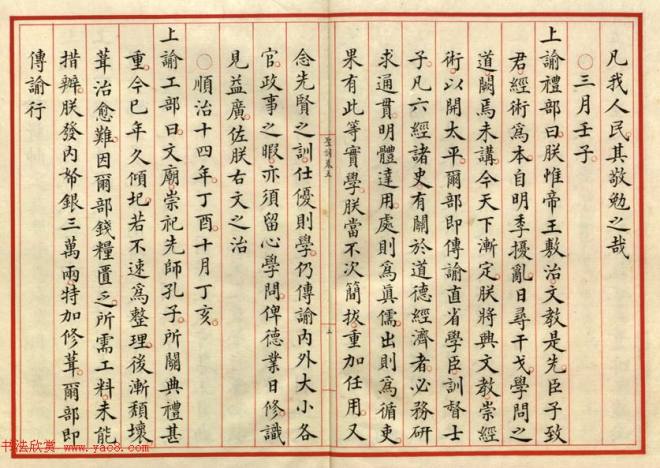 凡我人民其敬勉之哉
○三月壬子
上諭禮部曰朕惟帝王敷治文教是先臣子致
君經術為本自明季擾亂日尋干戈學問之
道闕焉未講今天下漸定朕將興文教崇經
術以開太平爾部即傳諭直省學臣訓督士
子凡六經諸史有關於道德經濟者必務研
求通貫明體達用處則為真儒出則為循吏
果有此等實學朕當不次簡拔重加任用又
聖訓卷五
五
念先賢之訓仕優則學仍傳諭內外大小各
官政事之暇亦須留心學問俾德業日修識
見益廣佐朕右文之治
○順治十四年丁酉十月丁亥
上諭工部曰文廟崇祀先師孔子所關典禮甚
重今已年久傾圮若不速為整理後漸頹壞
葺治愈難因爾部錢糧匱乏所需工料未能
措辦朕發內帑銀三萬兩特加修葺爾部即
傳諭行
书法欣赏 www.yac8.com